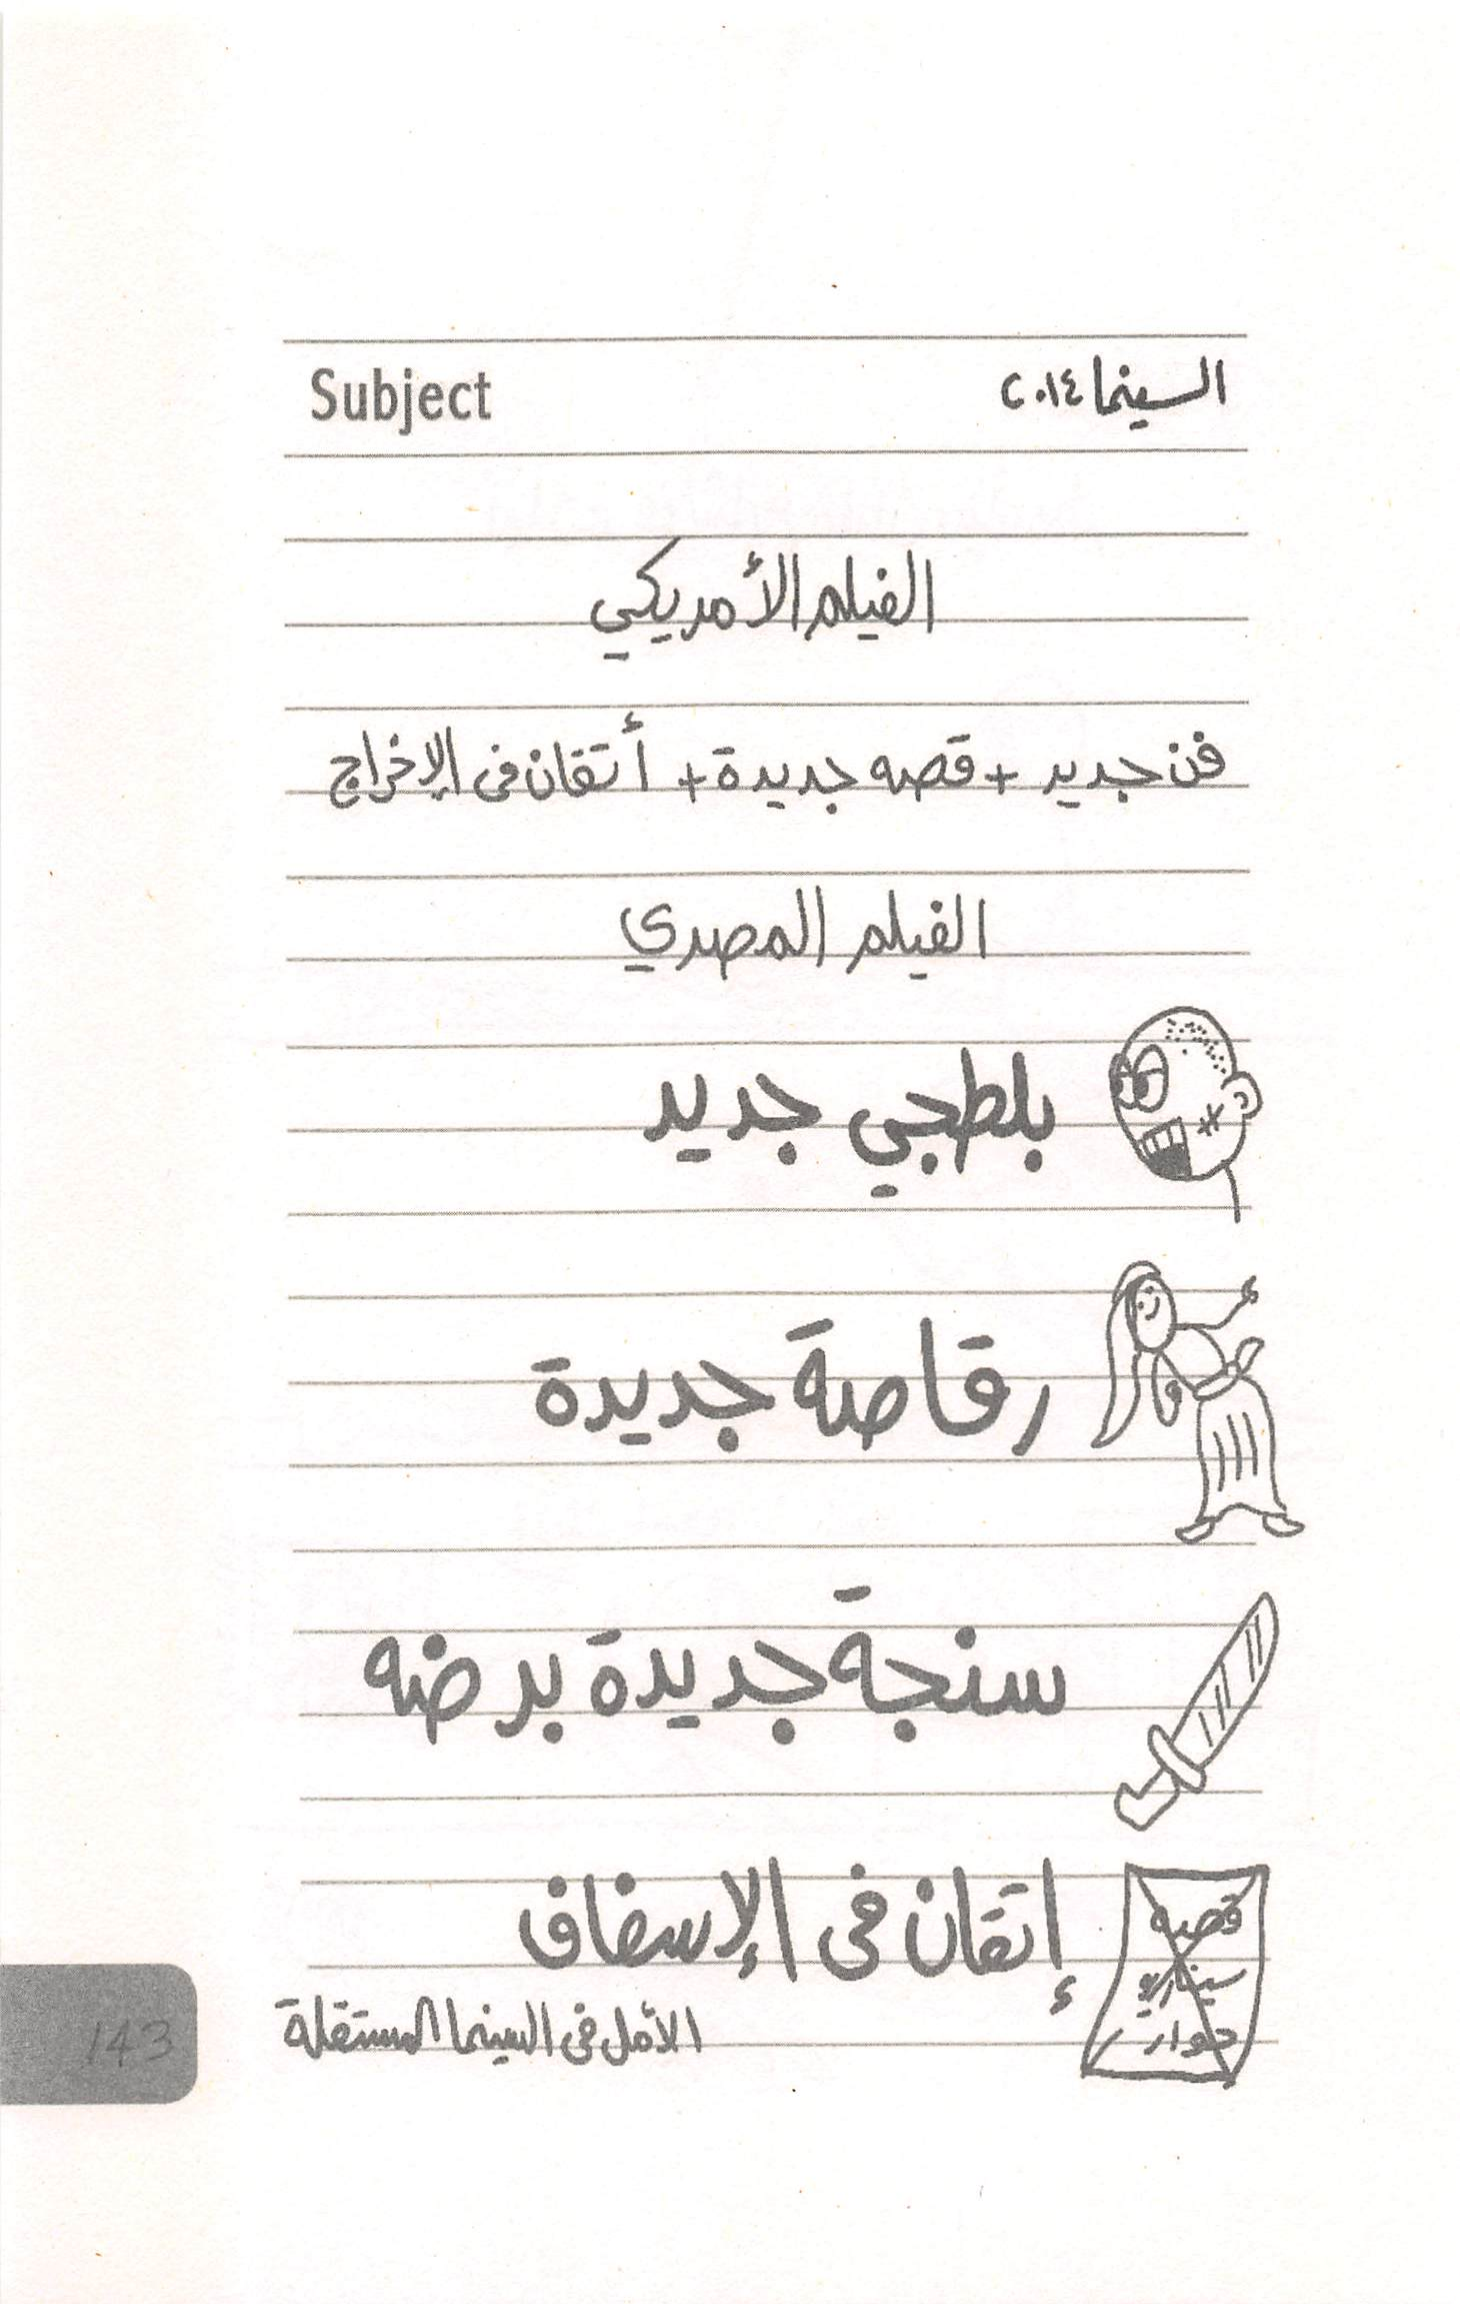 Subject السينما ٢٠١٤
الفيلم الأمريكي
فن جديد + قصه جديدة + أتقان فى الإخراج
الفيلم المصري
بلطجي جديد
رقاصة جديدة
سنجة جديدة برضه
إتقان فى الإسفاف
قصه
سيناريو
حوار
الأمل فى السينما المستقلة
143